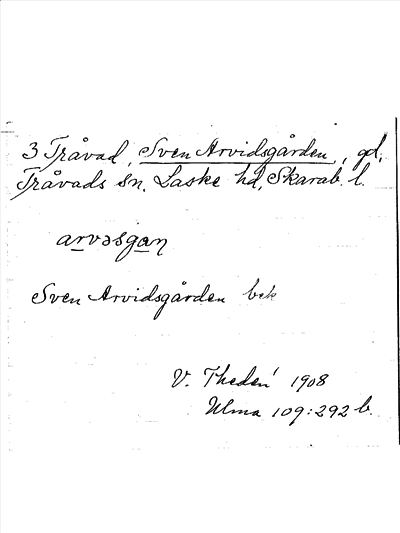 3 Tråvad, Sven Arvidsgården, gd,
Tråvads sn, Laske hd, Skarab. l.
arvəsgan
Sven Arvidsgården bek
V. Thedén 1908
Ulma 109:292 b.